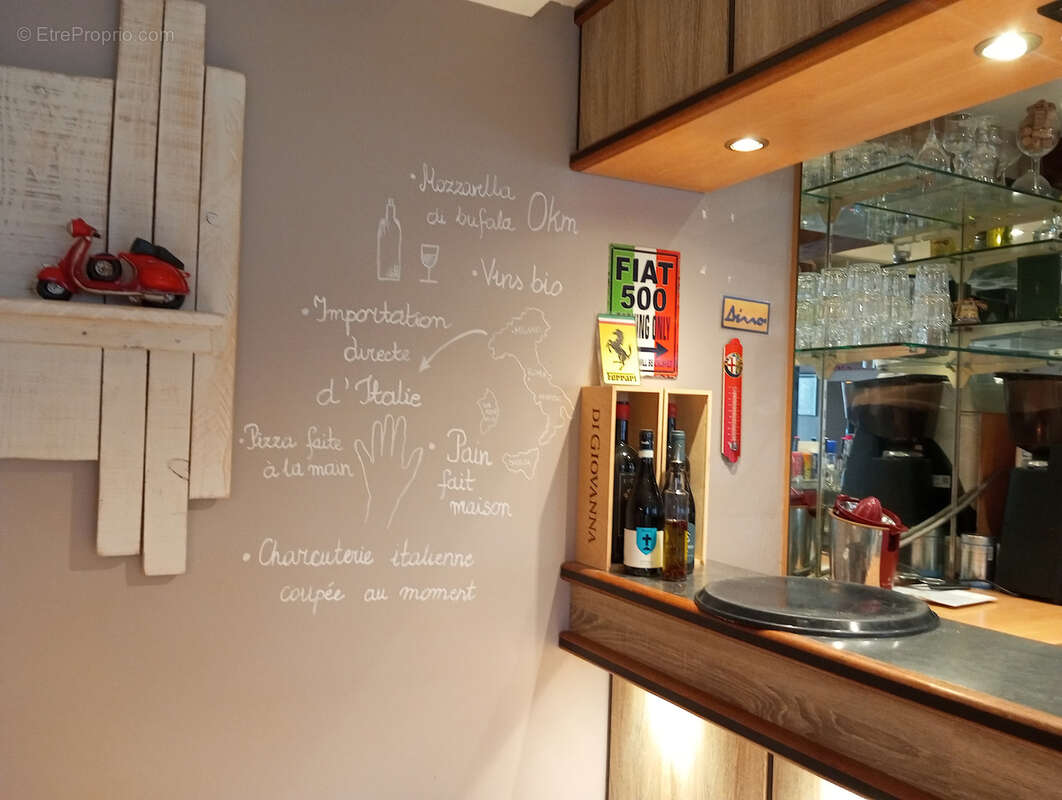 © EtreProprio.com
• Mozzarella
di bufala 0km
• Vins bio
• Importation
directe
d'Italie
MILANO
ROMA
• Pizza faite
à la main
• Pain
fait
maison
• Charcuterie italienne
coupée au moment
FIAT
500
ONLY
Ferrari
Dino
DI GIOVANNA